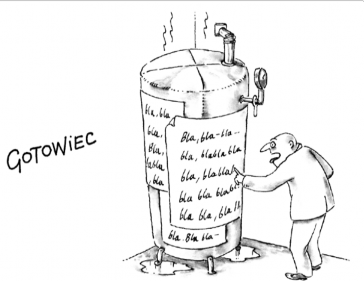 GOTOWiEC
bla, bla
bla,
Bla,
labla
bla
Bla, bla-bla--
bla, blabla bla
bla, blabla
bla bla blab
bla bla, bla b
bla. Bla bla-